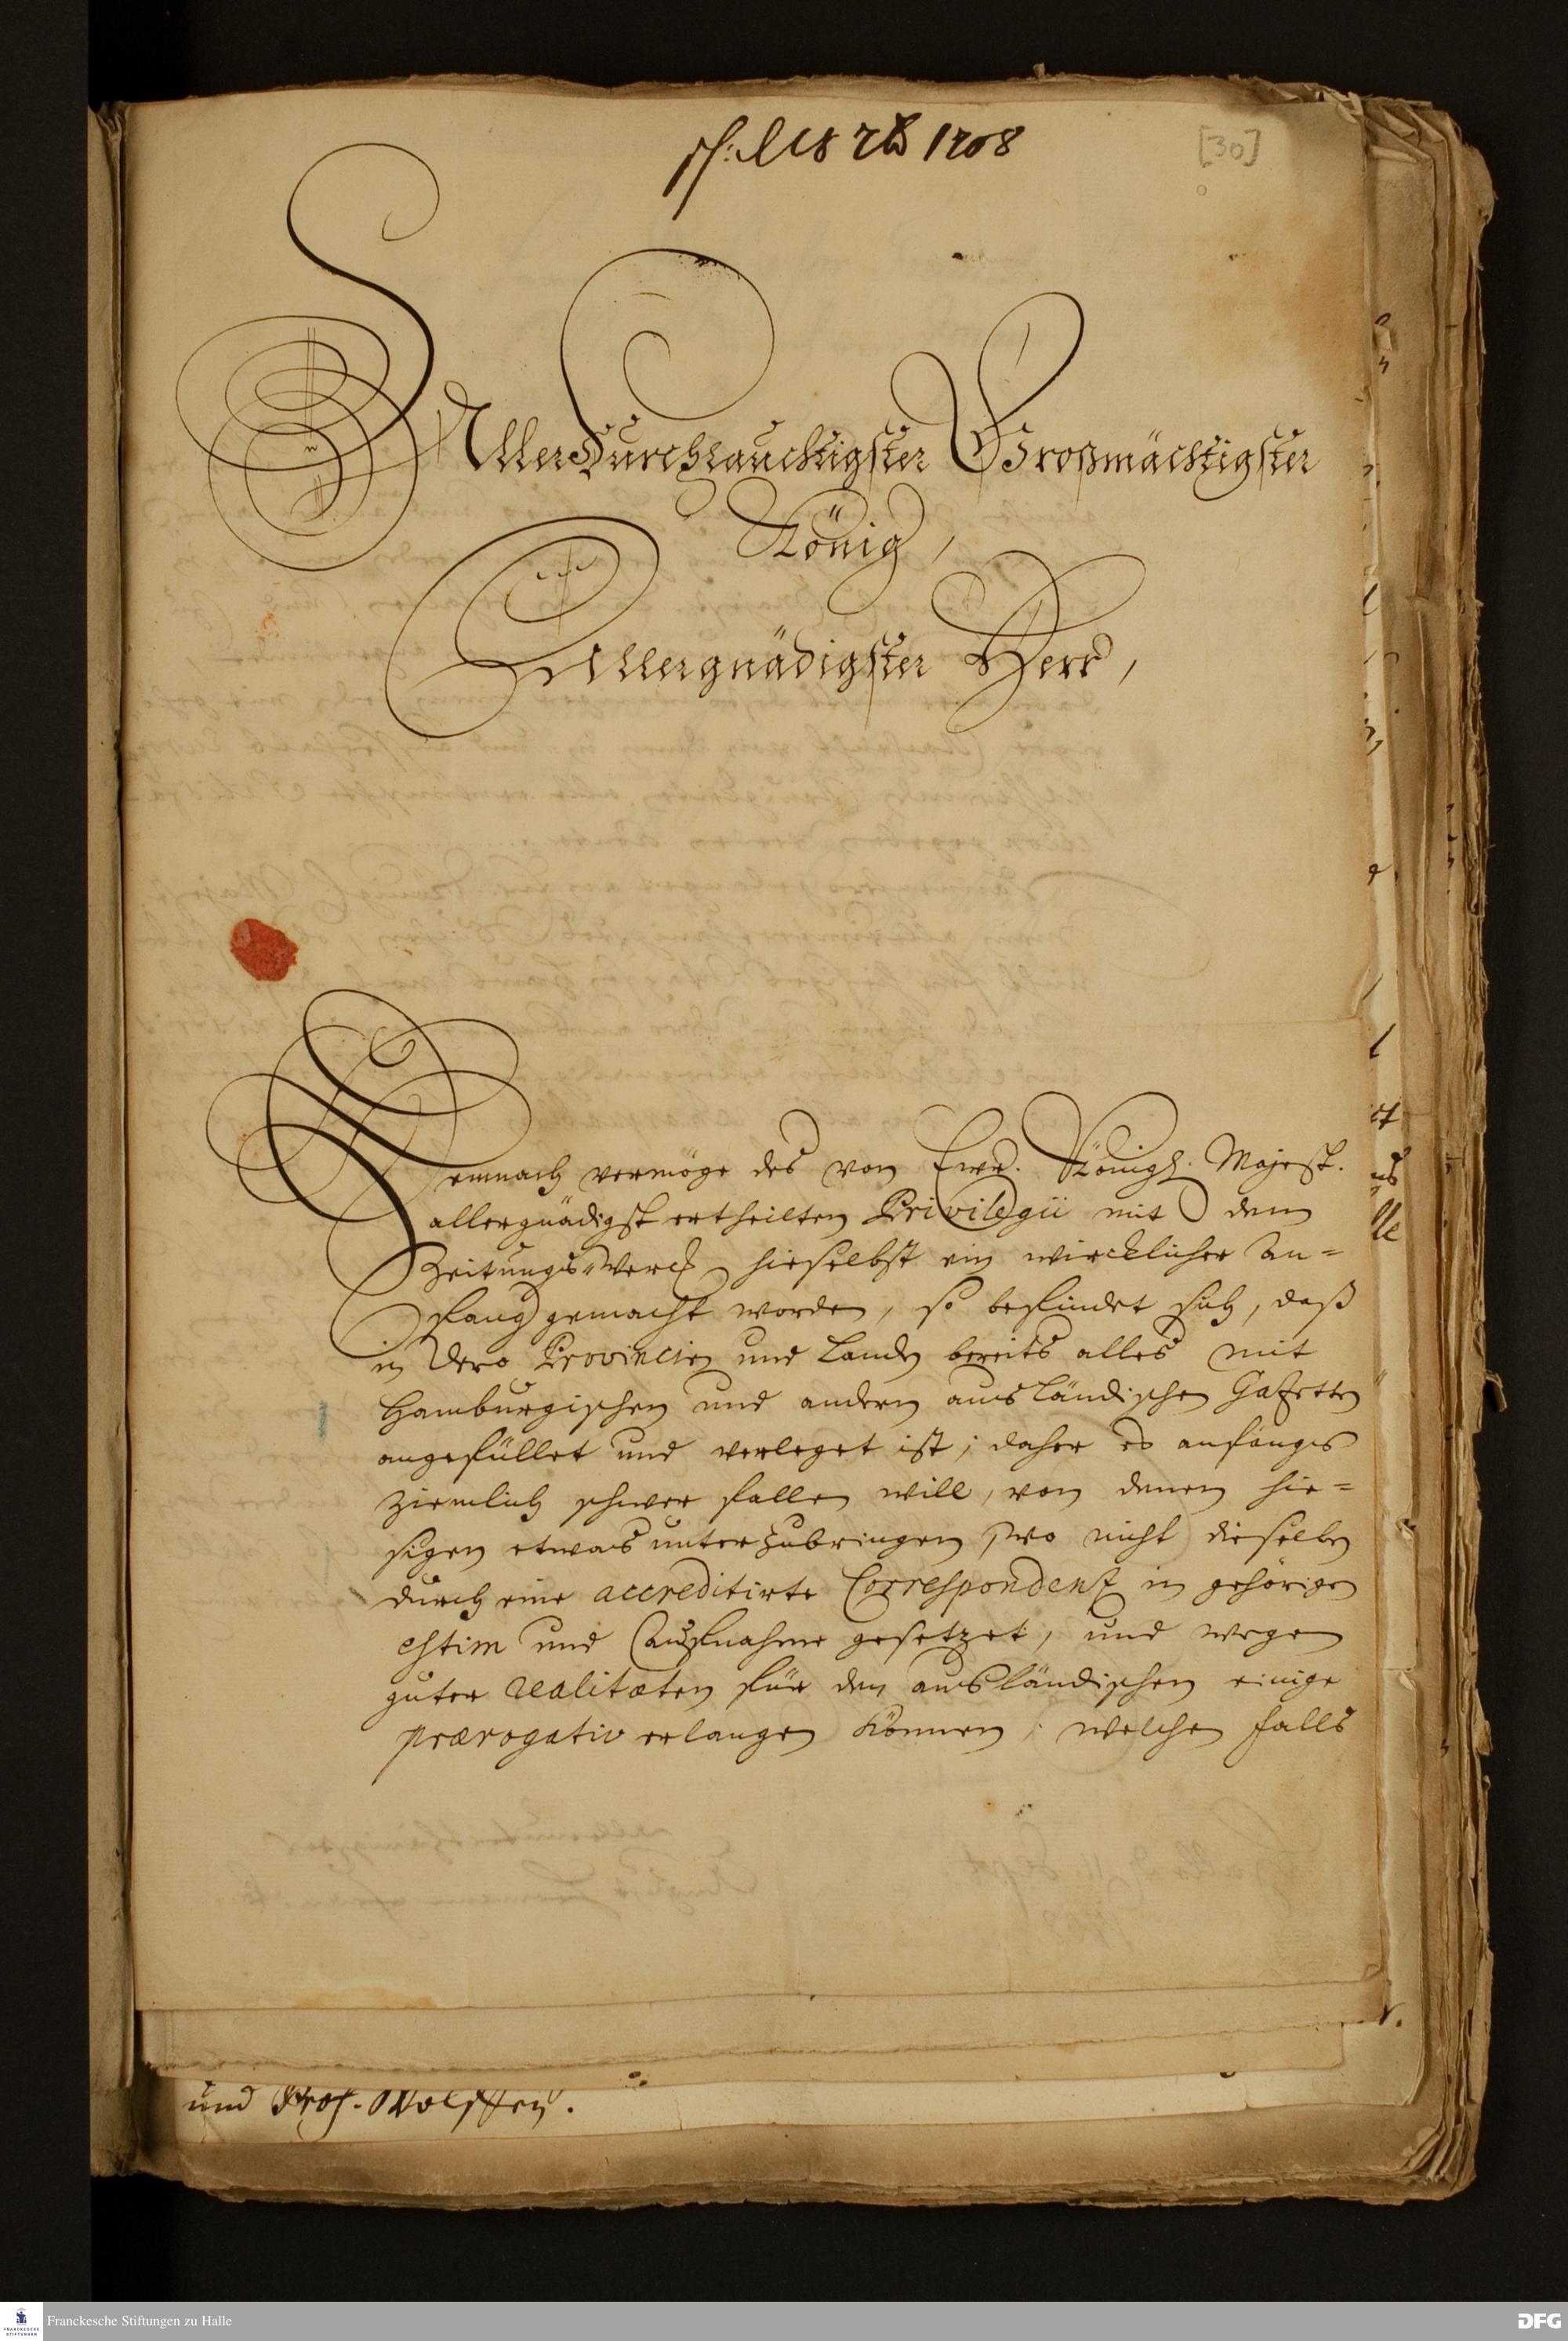 1708
[30]
AllerDurchlauchtigster Großmächtigster
König,
Allergnädigster Herr,
Demnach vermöge des von Ewr. Königl. Majest.
allergnädigst ertheilten Privilegii mit dem
Zeitungs-Werck hieselbst ein wircklicher An=
fang gemacht worden, so befindet sich, daß
in Dero Provincien und Landen bereits alles mit
Hamburgischen und andern ausländischen Gazetten
angefüllet und verleget ist; daher es anfangs
ziemlich schwer fallen will, von denen hie=
sigen etwas unterzubringen, wo nicht dieselben
durch eine accreditirte Correspondenz in gehörigen
estim und Aufnahme gesetzet, und wegen
guter realitæten für den ausländischen einige
prærogativ erlangen können; welchen falls
und Prof. Wolffen.
Franckesche Stiftungen zu Halle
DFG